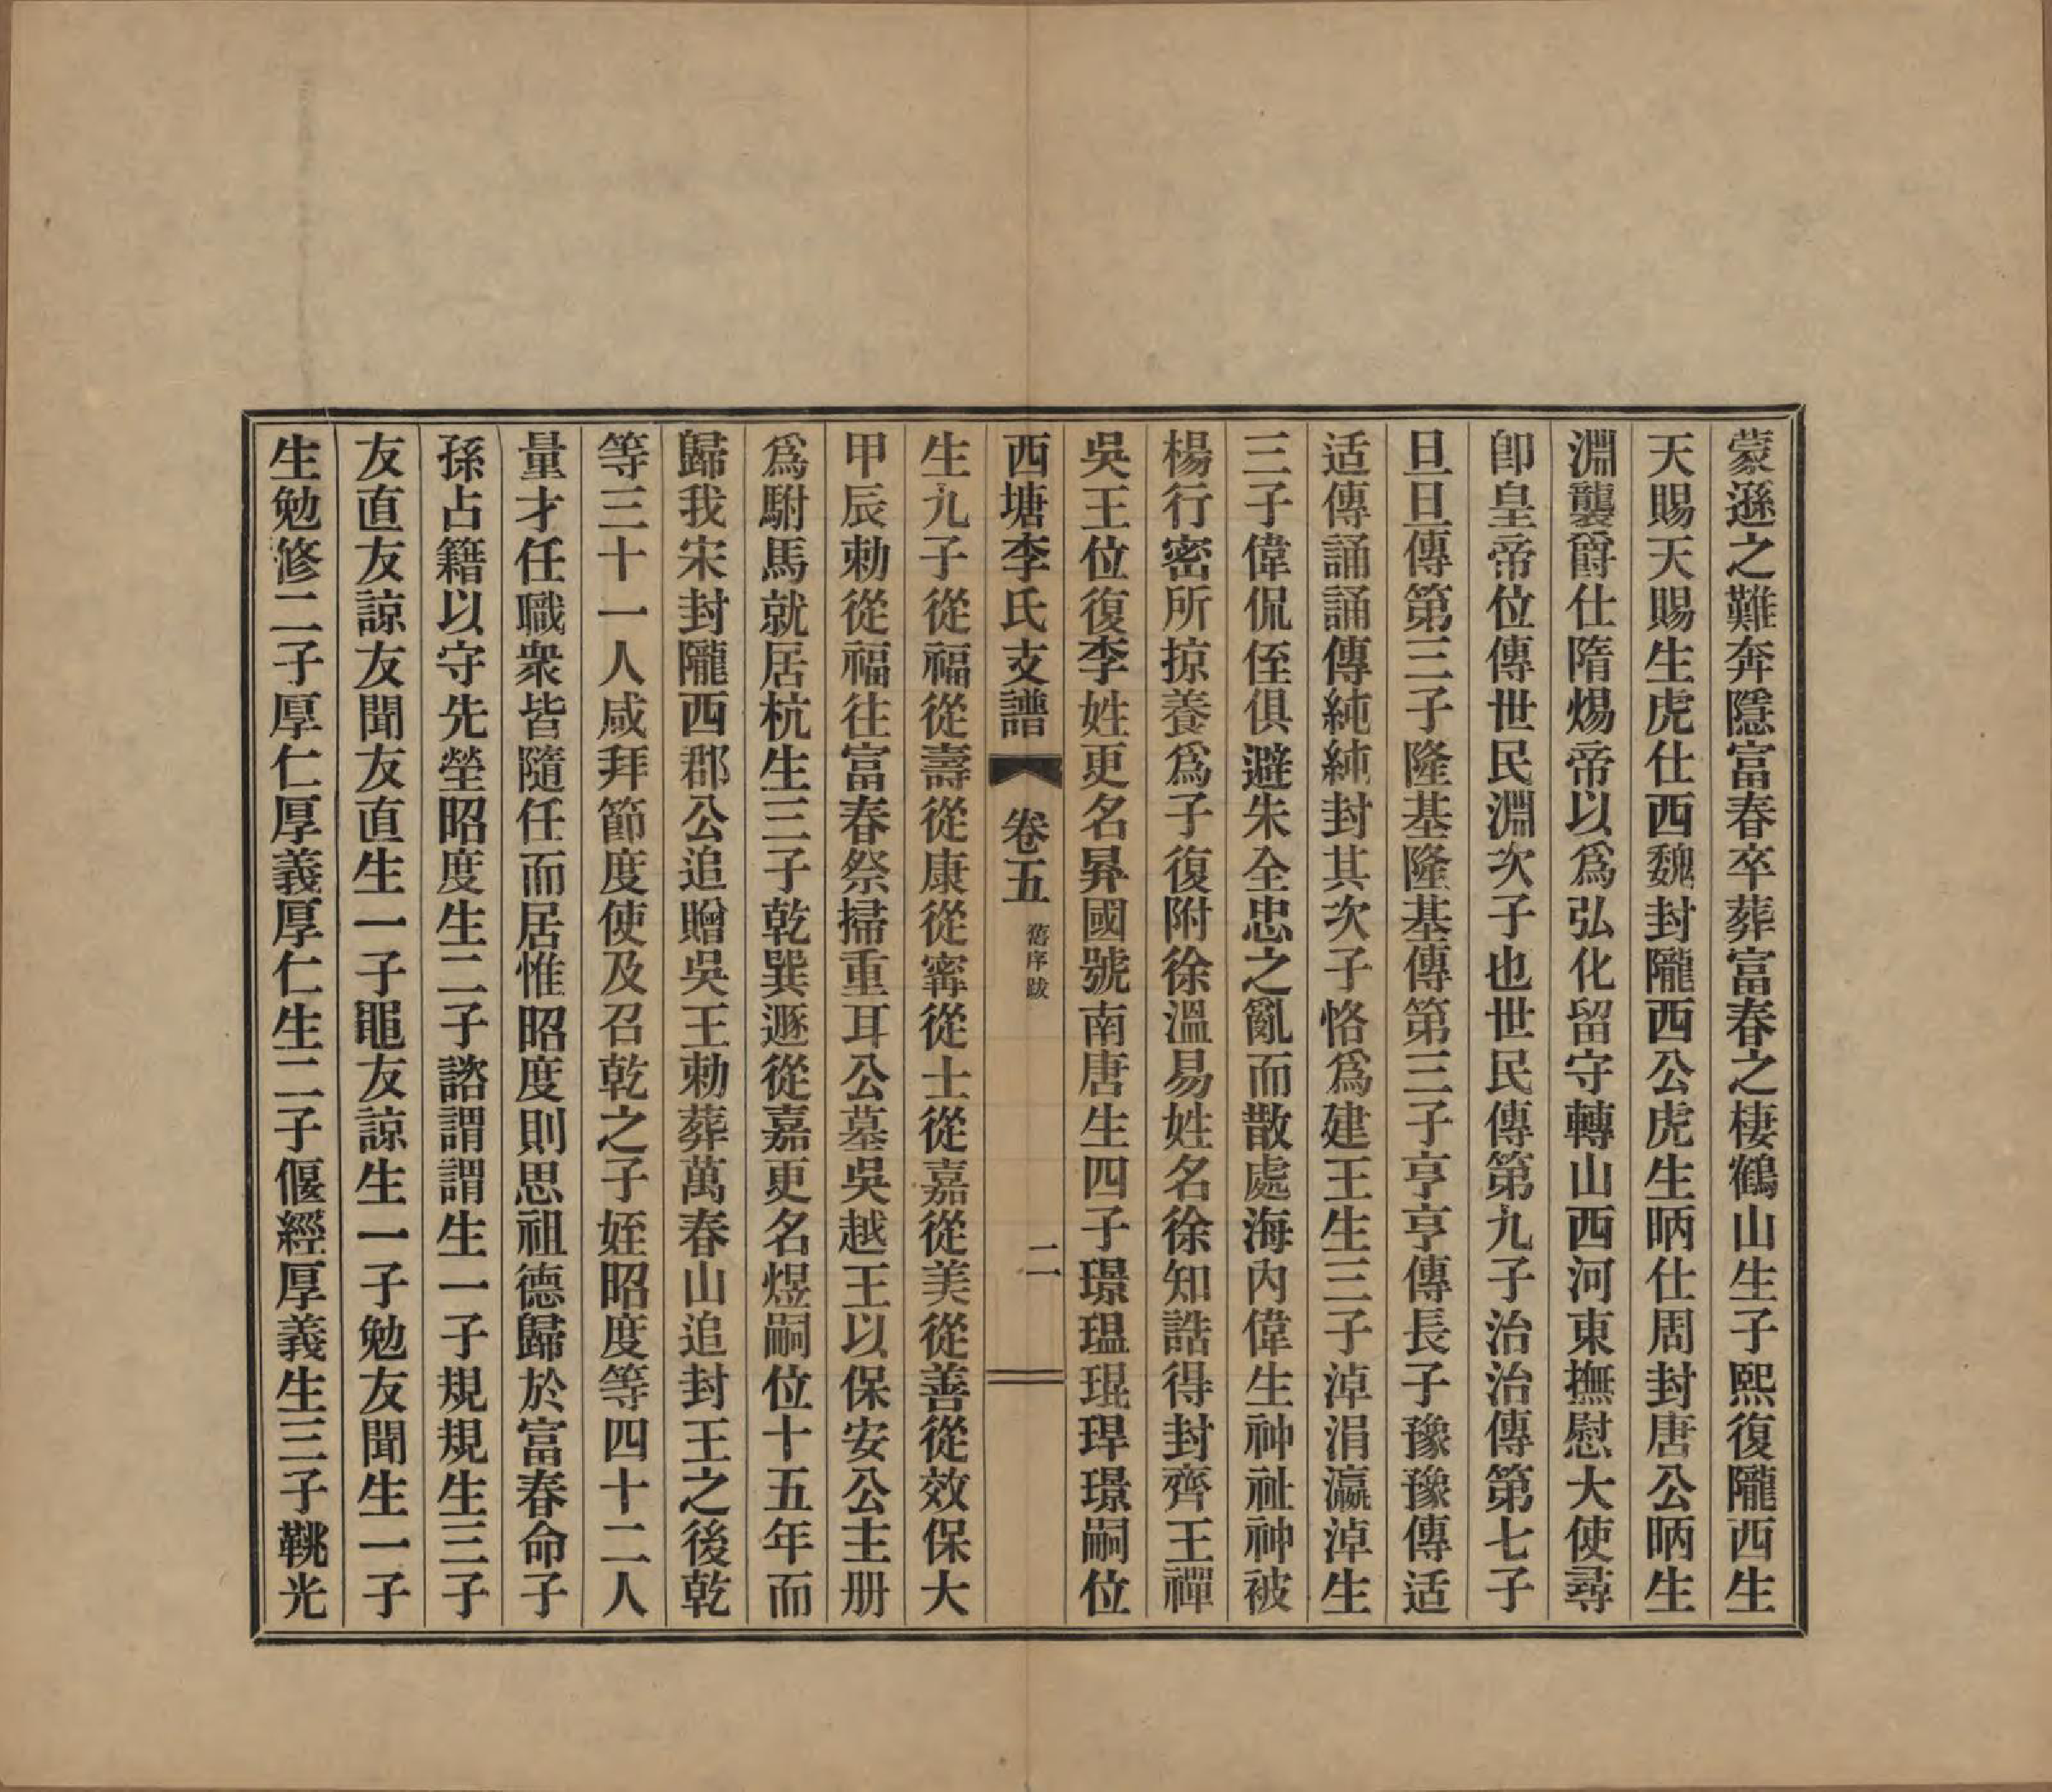 蒙遜之難奔隱富春卒葬富春之棲鶴山生子熙復隴西生
天賜天賜生虎仕西魏封隴西公虎生昞仕周封唐公昞生
淵襲爵仕隋煬帝以爲弘化留守轉山西河東撫慰大使尋
卽皇帝位傳世民淵次子也世民傳第九子治治傳第七子
旦旦傳第三子隆基隆基傳第三子亨亨傳長子豫豫傳适
适傳誦誦傳純純封其次子恪爲建王生三子淖涓瀛淖生
三子偉侃侄俱避朱全忠之亂而散處海內偉生神祉神被
楊行密所掠養爲子復附徐溫易姓名徐知誥得封齊王禪
吳王位復李姓更名昪國號南唐生四子璟瑥琨琾璟嗣位
西塘李氏支譜 卷五 舊序跋 二
生九子從福從壽從康從寗從士從嘉從美從善從效保大
甲辰勅從福往富春祭掃重耳公墓吳越王以保安公主册
爲駙馬就居杭生三子乾巽遜從嘉更名煜嗣位十五年而
歸我宋封隴西郡公追贈吳王勅葬萬春山追封王之後乾
等三十一人咸拜節度使及召乾之子姪昭度等四十二人
量才任職衆皆隨任而居惟昭度則思祖德歸於富春命子
孫占籍以守先塋昭度生二子諮謂謂生一子規規生三子
友直友諒友聞友直生一子黽友諒生一子勉友聞生一子
生勉修二子厚仁厚義厚仁生二子偃經厚義生三子鞉光